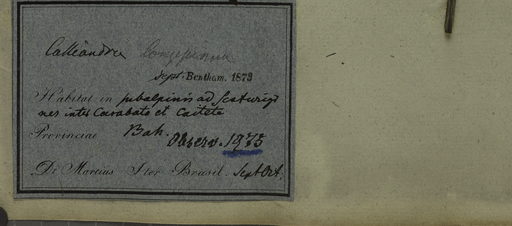 Calliandra longipinna
Sept. Bentham. 1873
Habitat in subalpinis ad Scaturigi
nes inter Carabato et Caiteta
Provinciae Bah.
Observ. 1975
Dr Martius Iter Brasil. Sept Oct.